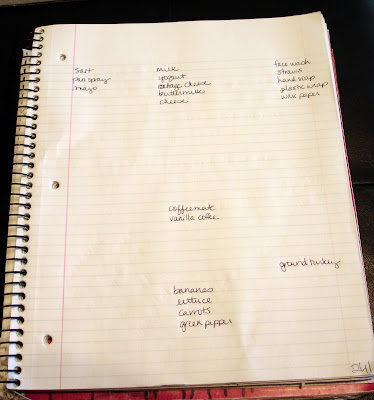 salt
pan spray
mayo
milk
yogurt
cottage cheese
buttermilk
cheese
face wash
straws
hand soap
plastic wrap
wax paper
coffeemate
vanilla coffee
ground turkey
bananas
lettuce
carrots
green pepper